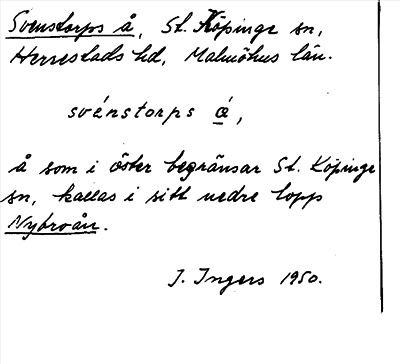 Svenstorps å, St. Köpinge sn,
Herrestads hd, Malmöhus län.
svénstorps ǻ,
å som i öster begränsar St. Köpinge
sn, kallas i sitt nedre lopp
Nybroån.
J. Ingers 1950.